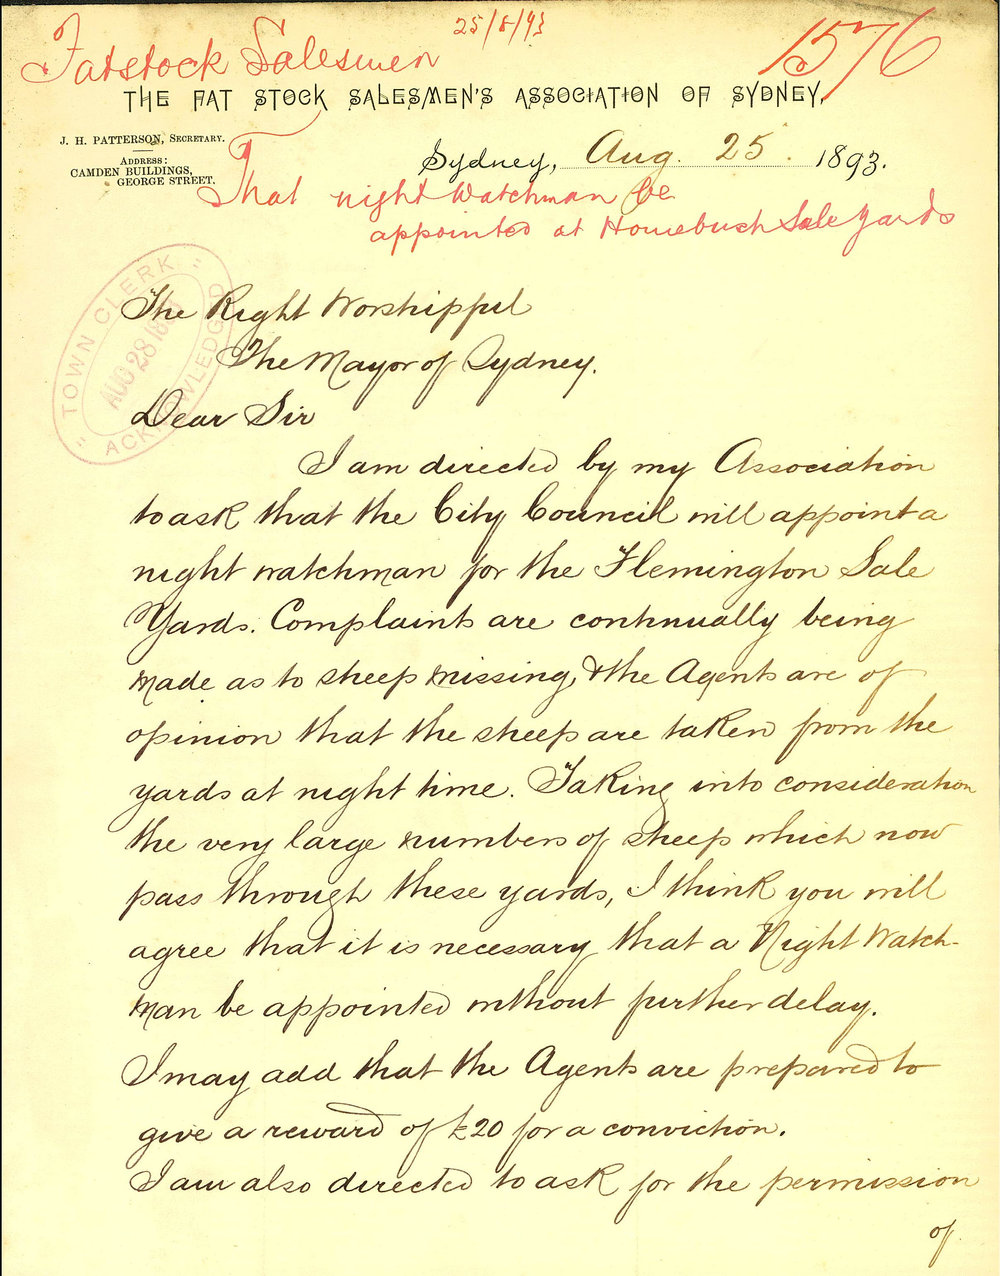 25/8/93
1576
Fatstock Salesmen
THE FAT STOCK SALESMEN'S ASSOCIATION OF SYDNEY.
J. H. PATTERSON, SECRETARY.
ADDRESS:
CAMDEN BUILDINGS,
GEORGE STREET.
Sydney, Aug. 25. 1893.
That night Watchman be
appointed at Homebush Sale Yards
TOWN CLERK
AUG 28 1893
ACKNOWLEDGED
The Right Worshipful
The Mayor of Sydney.
Dear Sir
I am directed by my Association
to ask that the City Council will appoint a
night watchman for the Flemington Sale
Yards. Complaints are continually being
made as to sheep missing, & the Agents are of
opinion that the sheep are taken from the
yards at night time. Taking into consideration
the very large numbers of sheep which now
pass through these yards, I think you will
agree that it is necessary that a Night Watch-
man be appointed without further delay.
I may add that the Agents are prepared to
give a reward of £20 for a conviction.
I am also directed to ask for the permission
of